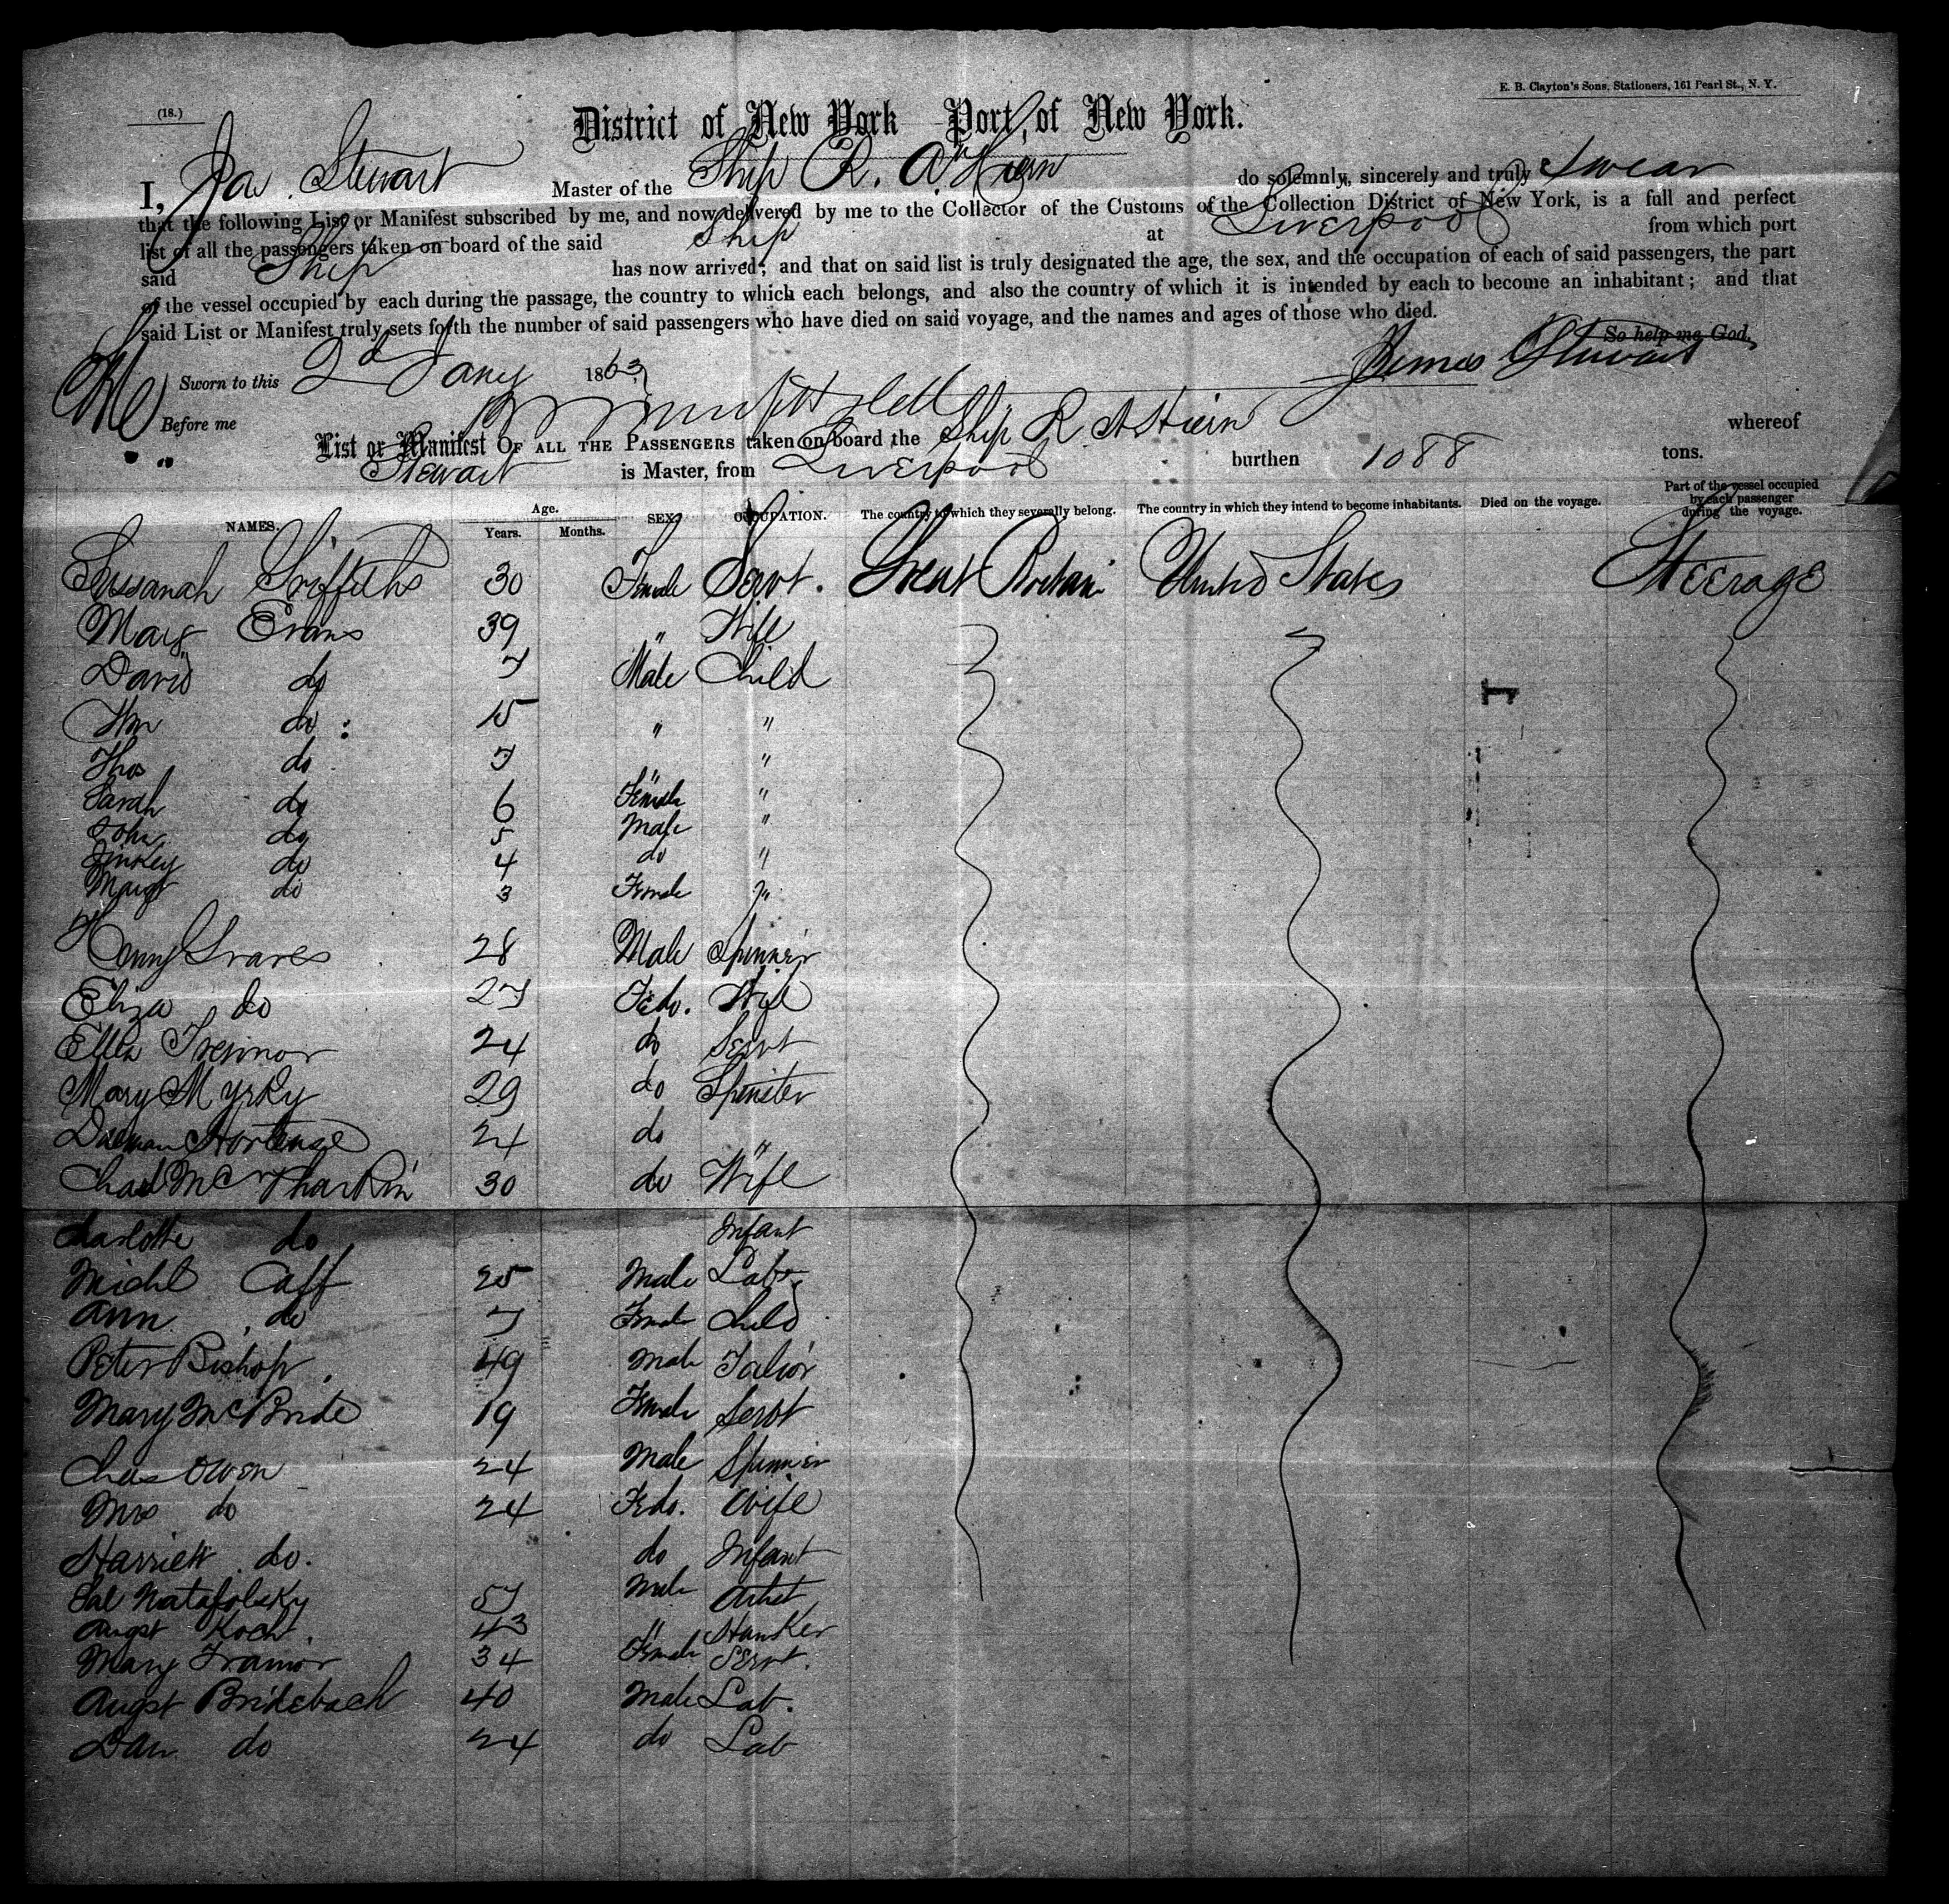 E. B. Clayton's Sons, Stationers, 161 Pearl St., N. Y.
(18.)
District of New York Port of New York.
I, Jas. Stewart Master of the Ship R. A. Hiern do solemnly, sincerely and truly swear
that the following List or Manifest subscribed by me, and now delivered by me to the Collector of the Customs of the Collection District of New York, is a full and perfect
list of all the passengers taken on board of the said Ship at Liverpool from which port
said Ship has now arrived; and that on said list is truly designated the age, the sex, and the occupation of each of said passengers, the part
of the vessel occupied by each during the passage, the country to which each belongs, and also the country of which it is intended by each to become an inhabitant; and that
said List or Manifest truly sets forth the number of said passengers who have died on said voyage, and the names and ages of those who died.
So help me God.
Sworn to this 2d Jany 1863 James Stewart
Before me
List or Manifest OF ALL THE PASSENGERS taken on board the Ship R A Hiern whereof
Stewart is Master, from Liverpool burthen 1088 tons.
NAMES. Age. Years. Months. SEX. OCCUPATION. The country to which they severally belong. The country in which they intend to become inhabitants. Died on the voyage. Part of the vessel occupied by each passenger during the voyage.
Susanah Griffiths 30 Female Servt. Great Britain United States Steerage
Marg Evans 39 " Wife
David do 7 Male Child
Wm do 15 " "
Thos do 7 " "
Sarah do 6 Female "
John do 5 Male "
do 4 do "
Margt do 3 Female "
Henry Graves 28 Male Spinner
Eliza do 27 Fedo. Wife
Ellen 24 do Servt
Mary 29 do Spinster
Hortense 24 do "
30 do Wife
Charlotte do Infant
Michl Caff 25 Male Labr
Ann do 7 Female Child
Peter Bishop 49 Male Tailor
Mary McBride 19 Female Servt
Chas Owen 24 Male Spinner
Mrs do 24 Fedo. Wife
Harriett do. do Infant
Sal Natafolsky 57 Male Artist
Augst Koch 43 "
Mary Tramor 34 Female Servt.
Augst Bridebach 40 Male Lab.
Dan do 24 do Lab